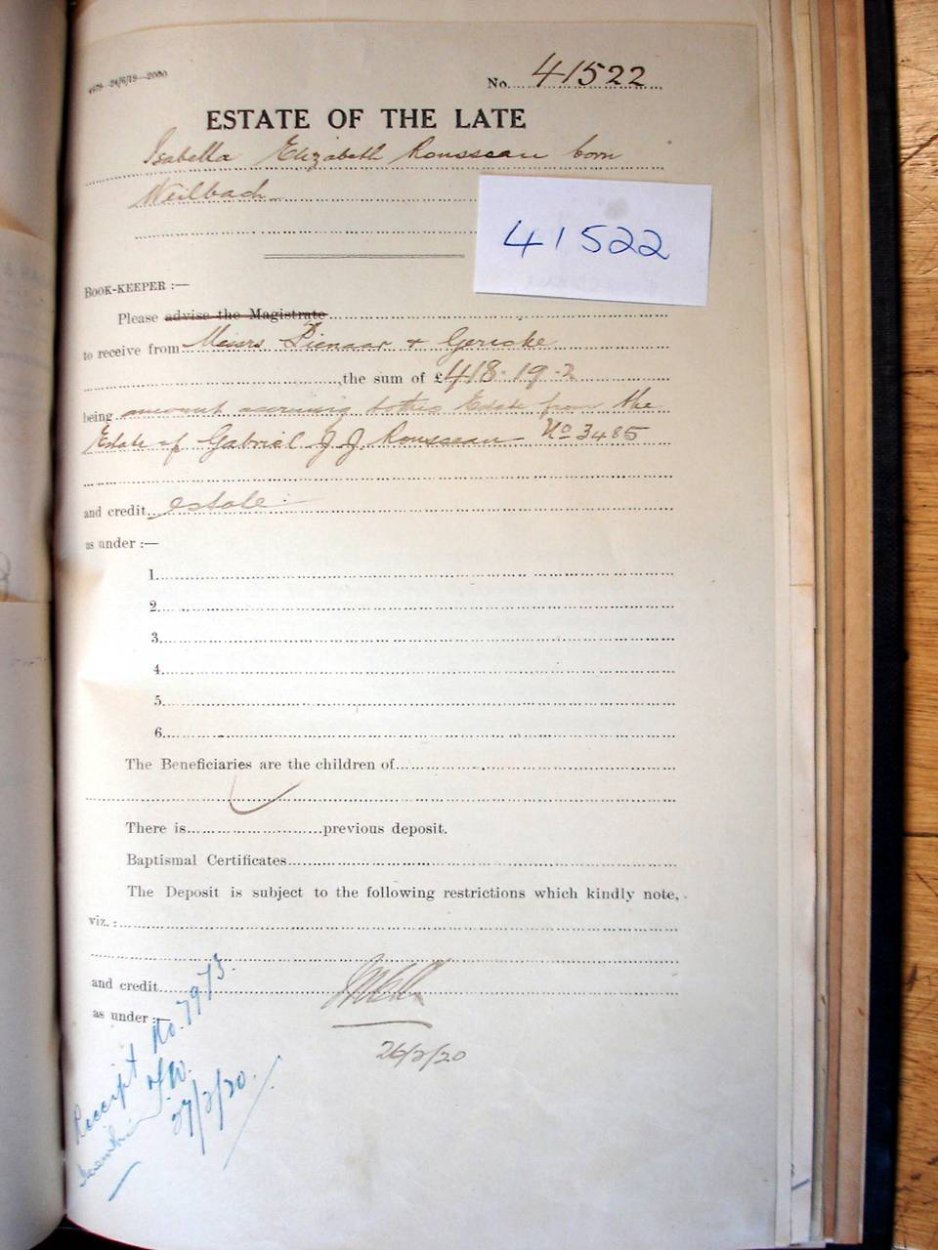 No. 41522
ESTATE OF THE LATE
Isabella Elizabeth Rousseau born
Weilbach
41522
BOOK-KEEPER :—
Please advise the Magistrate
to receive from Messrs Pienaar & Gericke
, the sum of £418-19-2
being amount accruing to this Estate from the
Estate of Gabriel J. J. Rousseau No 3485
and credit estate
as under :—
1.
2.
3.
4.
5.
6.
The Beneficiaries are the children of
There is previous deposit.
Baptismal Certificates
The Deposit is subject to the following restrictions which kindly note,
viz. :
and credit
as under :—
26/2/20
Receipt No. 7973.
27/2/20.